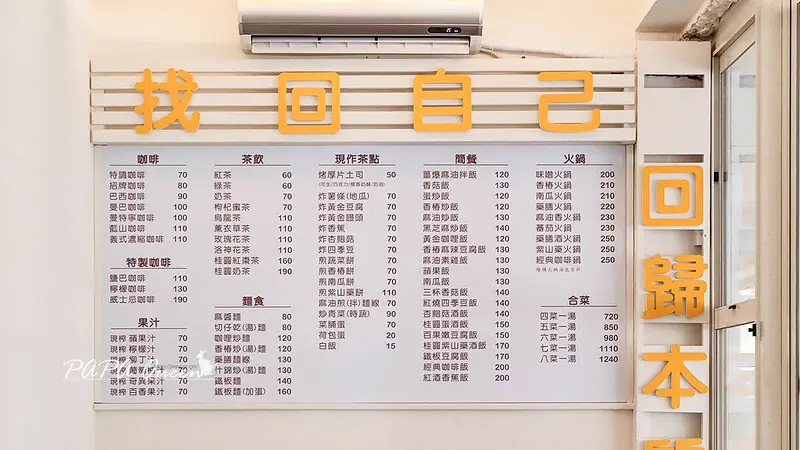 找回自己
咖啡
特調咖啡 70
招牌咖啡 80
巴西咖啡 90
曼巴咖啡 100
曼特寧咖啡 100
藍山咖啡 110
義式濃縮咖啡 110
特製咖啡
鹽巴咖啡 110
檸檬咖啡 130
威士忌咖啡 190
果汁
現榨 蘋果汁 70
現榨 檸檬汁 70
現榨 柳丁汁 70
現榨 葡萄汁 70
現榨 奇異果汁 70
現榨 百香果汁 70
茶飲
紅茶 60
綠茶 60
奶茶 70
枸杞蜜茶 70
烏龍茶 110
薰衣草茶 110
玫瑰花茶 110
洛神花茶 110
桂圓紅棗茶 160
桂圓奶茶 190
麵食
麻醬麵 80
切仔乾(湯)麵 80
咖哩炒麵 120
香椿炒(湯)麵 120
藥膳麵線 130
什錦炒(湯)麵 130
鐵板麵 140
鐵板麵(加蛋) 160
現作茶點
烤厚片土司 50
炸薯條(地瓜) 70
炸黃金豆腐 70
炸黃金饅頭 70
炸香蕉 70
炸杏鮑菇 70
炸四季豆 70
煎蔬菜餅 70
煎香椿餅 70
煎南瓜餅 70
煎紫山藥餅 110
麻油煎(拌)麵線 70
炒青菜(時蔬) 90
菜脯蛋 70
荷包蛋 20
白飯 15
簡餐
薑爆麻油拌飯 120
香菇飯 130
蛋炒飯 120
香椿炒飯 120
麻油炒飯 130
黑芝麻炒飯 130
黃金咖哩飯 120
香椿麻辣豆腐飯 130
麻油素雞飯 130
蘋果飯 130
南瓜飯 130
三杯香菇飯 140
紅燒四季豆飯 140
杏鮑菇酒飯 140
桂圓蛋酒飯 150
百果嫩豆腐飯 150
桂圓紫山藥酒飯 170
鐵板豆腐飯 170
經典咖啡飯 200
紅酒香蕉飯 200
火鍋
味噌火鍋 200
香椿火鍋 210
南瓜火鍋 210
藥膳火鍋 220
麻油香火鍋 230
蕃茄火鍋 230
藥膳酒火鍋 250
紫山藥火鍋 250
經典咖啡火鍋 250
合菜
四菜一湯 720
五菜一湯 850
六菜一湯 980
七菜一湯 1110
八菜一湯 1240
回歸本
PAPA Queen